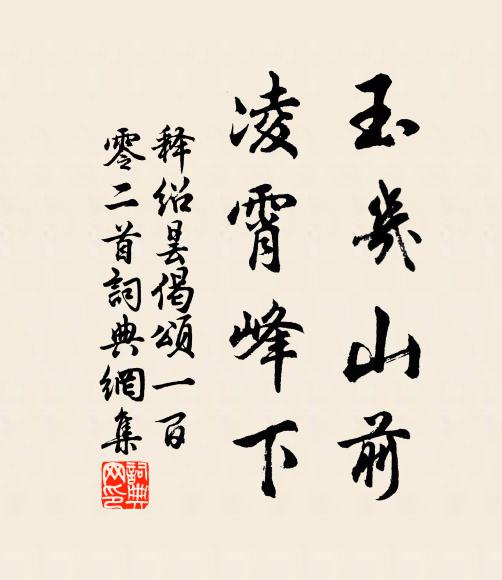 玉几山前
凌霄峰下
释绍昙偈颂一百
零二首詞典網集
詞典
网印